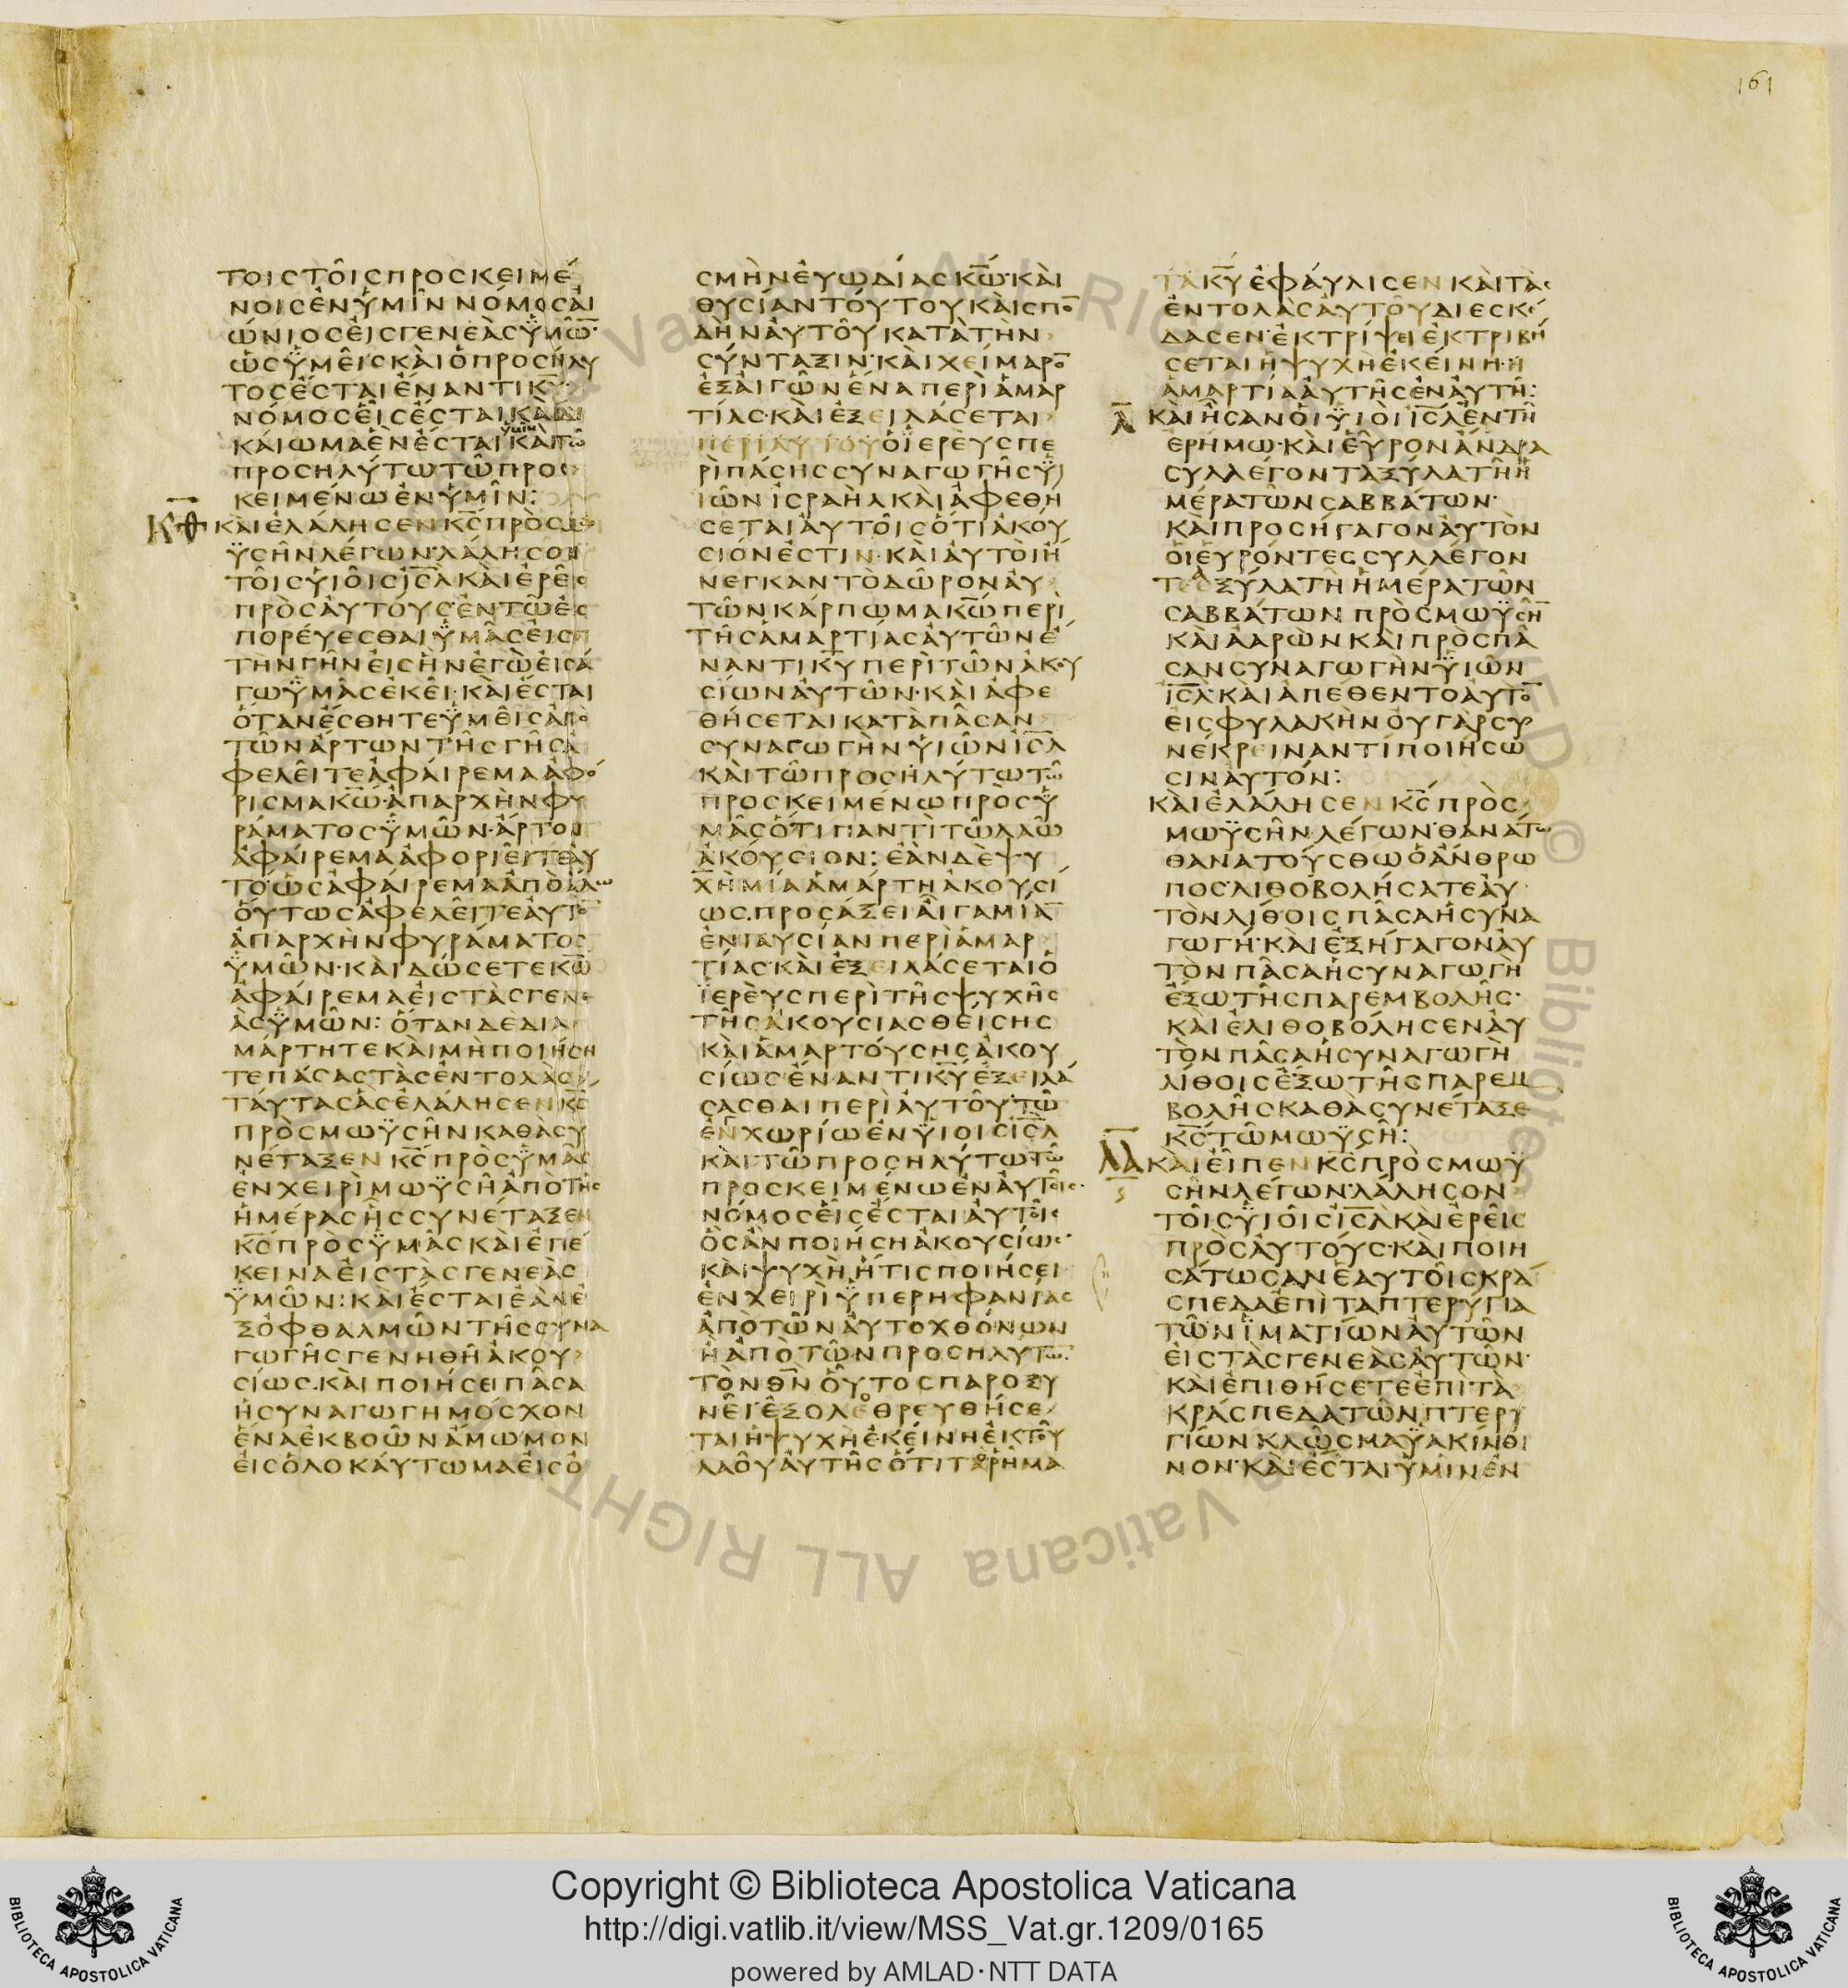 161
ΤΟΙΣ ΤΟΙΣ ΠΡΟΣΚΕΙΜΕ
ΝΟΙΣ ΕΝ ΥΜΙΝ ΝΟΜΟΣ ΑΙ
ΩΝΙΟΣ ΕΙΣ ΓΕΝΕΑΣ ΥΜΩ̅
ΩΣ ΥΜΕΙΣ ΚΑΙ Ο ΠΡΟΣΗΛΥ
ΤΟΣ ΕΣΤΑΙ ΕΝΑΝΤΙ Κ̅Υ̅
ΝΟΜΟΣ ΕΙΣ ΕΣΤΑΙ ΚΑΙ ΔΙ
ΚΑΙΩΜΑ ΕΝ ΕΣΤΑΙ ΥΜΙΝ ΚΑΙ ΤΩ
ΠΡΟΣΗΛΥΤΩ ΤΩ ΠΡΟΣ
ΚΕΙΜΕΝΩ ΕΝ ΥΜΙΝ:
ΚΘ ΚΑΙ ΕΛΑΛΗΣΕΝ Κ̅Σ̅ ΠΡΟΣ ΜΩ
ΥΣΗΝ ΛΕΓΩΝ ΛΑΛΗΣΟΝ
ΤΟΙΣ ΥΙΟΙΣ Ι̅Σ̅Λ̅ ΚΑΙ ΕΡΕΙΣ
ΠΡΟΣ ΑΥΤΟΥΣ ΕΝ ΤΩ ΕΙΣ
ΠΟΡΕΥΕΣΘΑΙ ΥΜΑΣ ΕΙΣ
ΤΗΝ ΓΗΝ ΕΙΣ ΗΝ ΕΓΩ ΕΙΣΑ
ΓΩ ΥΜΑΣ ΕΚΕΙ ΚΑΙ ΕΣΤΑΙ
ΟΤΑΝ ΕΣΘΗΤΕ ΥΜΕΙΣ ΑΠΟ
ΤΩΝ ΑΡΤΩΝ ΤΗΣ ΓΗΣ Α
ΦΕΛΕΙΤΕ ΑΦΑΙΡΕΜΑ ΑΦΟ
ΡΙΣΜΑ Κ̅Ω̅ ΑΠΑΡΧΗΝ ΦΥ
ΡΑΜΑΤΟΣ ΥΜΩΝ ΑΡΤΟΝ
ΑΦΑΙΡΕΜΑ ΑΦΟΡΙΕΙΤΕ ΑΥ
ΤΟ ΩΣ ΑΦΑΙΡΕΜΑ ΑΠΟ ΑΛΩ
ΟΥΤΩΣ ΑΦΕΛΕΙΤΕ ΑΥΤΟ̅
ΑΠΑΡΧΗΝ ΦΥΡΑΜΑΤΟΣ
ΥΜΩΝ ΚΑΙ ΔΩΣΕΤΕ Κ̅Ω̅
ΑΦΑΙΡΕΜΑ ΕΙΣ ΤΑΣ ΓΕΝΕ
ΑΣ ΥΜΩΝ: ΟΤΑΝ ΔΕ ΔΙΑ
ΜΑΡΤΗΤΕ ΚΑΙ ΜΗ ΠΟΙΗΣΗ
ΤΕ ΠΑΣΑΣ ΤΑΣ ΕΝΤΟΛΑΣ
ΤΑΥΤΑΣ ΑΣ ΕΛΑΛΗΣΕΝ Κ̅Σ̅
ΠΡΟΣ ΜΩΥΣΗΝ ΚΑΘΑ ΣΥ
ΝΕΤΑΞΕΝ Κ̅Σ̅ ΠΡΟΣ ΥΜΑΣ
ΕΝ ΧΕΙΡΙ ΜΩΥΣΗ ΑΠΟ ΤΗΣ
ΗΜΕΡΑΣ ΗΣ ΣΥΝΕΤΑΞΕΝ
Κ̅Σ̅ ΠΡΟΣ ΥΜΑΣ ΚΑΙ ΕΠΕ
ΚΕΙΝΑ ΕΙΣ ΤΑΣ ΓΕΝΕΑΣ
ΥΜΩΝ: ΚΑΙ ΕΣΤΑΙ ΕΑΝ Ε
Ξ ΟΦΘΑΛΜΩΝ ΤΗΣ ΣΥΝΑ
ΓΩΓΗΣ ΓΕΝΗΘΗ ΑΚΟΥ
ΣΙΩΣ ΚΑΙ ΠΟΙΗΣΕΙ ΠΑΣΑ
Η ΣΥΝΑΓΩΓΗ ΜΟΣΧΟΝ
ΕΝΑ ΕΚ ΒΟΩΝ ΑΜΩΜΟΝ
ΕΙΣ ΟΛΟΚΑΥΤΩΜΑ ΕΙΣ Ο
ΣΜΗΝ ΕΥΩΔΙΑΣ Κ̅Ω̅ ΚΑΙ
ΘΥΣΙΑΝ ΤΟΥΤΟΥ ΚΑΙ ΣΠΟ̅
ΔΗΝ ΑΥΤΟΥ ΚΑΤΑ ΤΗΝ
ΣΥΝΤΑΞΙΝ ΚΑΙ ΧΕΙΜΑΡΟ̅
ΕΞ ΑΙΓΩΝ ΕΝΑ ΠΕΡΙ ΑΜΑΡ
ΤΙΑΣ ΚΑΙ ΕΞΕΙΛΑΣΕΤΑΙ
ΠΕΡΙ ΑΥΤΟΥ Ο ΙΕΡΕΥΣ ΠΕ
ΡΙ ΠΑΣΗΣ ΣΥΝΑΓΩΓΗΣ ΥΙ
ΙΩΝ ΙΣΡΑΗΛ ΚΑΙ ΑΦΕΘΗ
ΣΕΤΑΙ ΑΥΤΟΙΣ ΟΤΙ ΑΚΟΥ
ΣΙΟΝ ΕΣΤΙΝ ΚΑΙ ΑΥΤΟΙ Η
ΝΕΓΚΑΝ ΤΟ ΔΩΡΟΝ ΑΥ
ΤΩΝ ΚΑΡΠΩΜΑ Κ̅Ω̅ ΠΕΡΙ
ΤΗΣ ΑΜΑΡΤΙΑΣ ΑΥΤΩΝ Ε
ΝΑΝΤΙ Κ̅Υ̅ ΠΕΡΙ ΤΩΝ ΑΚΟΥ
ΣΙΩΝ ΑΥΤΩΝ ΚΑΙ ΑΦΕ
ΘΗΣΕΤΑΙ ΚΑΤΑ ΠΑΣΑΝ
ΣΥΝΑΓΩΓΗΝ ΥΙΩΝ Ι̅Σ̅Λ̅
ΚΑΙ ΤΩ ΠΡΟΣΗΛΥΤΩ ΤΩ
ΠΡΟΣΚΕΙΜΕΝΩ ΠΡΟΣ Υ
ΜΑΣ ΟΤΙ ΠΑΝΤΙ ΤΩ ΛΑΩ
ΑΚΟΥΣΙΟΝ: ΕΑΝ ΔΕ ΨΥ
ΧΗ ΜΙΑ ΑΜΑΡΤΗ ΑΚΟΥΣΙ
ΩΣ ΠΡΟΣΑΞΕΙ ΑΙΓΑ ΜΙΑ̅
ΕΝΙΑΥΣΙΑΝ ΠΕΡΙ ΑΜΑΡ
ΤΙΑΣ ΚΑΙ ΕΞΕΙΛΑΣΕΤΑΙ Ο
ΙΕΡΕΥΣ ΠΕΡΙ ΤΗΣ ΨΥΧΗΣ
ΤΗΣ ΑΚΟΥΣΙΑΣΘΕΙΣΗΣ
ΚΑΙ ΑΜΑΡΤΟΥΣΗΣ ΑΚΟΥ
ΣΙΩΣ ΕΝΑΝΤΙ Κ̅Υ̅ ΕΞΕΙΛΑ
ΣΑΣΘΑΙ ΠΕΡΙ ΑΥΤΟΥ ΤΩ
ΕΝΧΩΡΙΩ ΕΝ ΥΙΟΙΣ Ι̅Σ̅Λ̅
ΚΑΙ ΤΩ ΠΡΟΣΗΛΥΤΩ ΤΩ
ΠΡΟΣΚΕΙΜΕΝΩ ΕΝ ΑΥΤΟΙΣ
ΝΟΜΟΣ ΕΙΣ ΕΣΤΑΙ ΑΥΤΟΙΣ
ΟΣ ΑΝ ΠΟΙΗΣΗ ΑΚΟΥΣΙΩΣ
ΚΑΙ ΨΥΧΗ ΗΤΙΣ ΠΟΙΗΣΕΙ
ΕΝ ΧΕΙΡΙ ΥΠΕΡΗΦΑΝΙΑΣ
ΑΠΟ ΤΩΝ ΑΥΤΟΧΘΟΝΩΝ
Η ΑΠΟ ΤΩΝ ΠΡΟΣΗΛΥΤΩ̅
ΤΟΝ Θ̅Ν̅ ΟΥΤΟΣ ΠΑΡΟΞΥ
ΝΕΙ ΕΞΟΛΕΘΡΕΥΘΗΣΕ
ΤΑΙ Η ΨΥΧΗ ΕΚΕΙΝΗ ΕΚ ΤΟΥ
ΛΑΟΥ ΑΥΤΗΣ ΟΤΙ ΤΟ ΡΗΜΑ
ΤΑ Κ̅Υ̅ ΕΦΑΥΛΙΣΕΝ ΚΑΙ ΤΑΣ
ΕΝΤΟΛΑΣ ΑΥΤΟΥ ΔΙΕΣΚΕ
ΔΑΣΕΝ ΕΚΤΡΙΨΕΙ ΕΚΤΡΙΒΗ
ΣΕΤΑΙ Η ΨΥΧΗ ΕΚΕΙΝΗ Η
ΑΜΑΡΤΙΑ ΑΥΤΗΣ ΕΝ ΑΥΤΗ:
Λ̅ ΚΑΙ ΗΣΑΝ ΟΙ ΥΙΟΙ Ι̅Σ̅Λ̅ ΕΝ ΤΗ
ΕΡΗΜΩ ΚΑΙ ΕΥΡΟΝ ΑΝΔΡΑ
ΣΥΛΛΕΓΟΝΤΑ ΞΥΛΑ ΤΗ Η
ΜΕΡΑ ΤΩΝ ΣΑΒΒΑΤΩΝ
ΚΑΙ ΠΡΟΣΗΓΑΓΟΝ ΑΥΤΟΝ
ΟΙ ΕΥΡΟΝΤΕΣ ΣΥΛΛΕΓΟΝ
ΤΑ ΞΥΛΑ ΤΗ ΗΜΕΡΑ ΤΩΝ
ΣΑΒΒΑΤΩΝ ΠΡΟΣ ΜΩΥΣΗ̅
ΚΑΙ ΑΑΡΩΝ ΚΑΙ ΠΡΟΣ ΠΑ
ΣΑΝ ΣΥΝΑΓΩΓΗΝ ΥΙΩΝ
Ι̅Σ̅Λ̅ ΚΑΙ ΑΠΕΘΕΝΤΟ ΑΥΤΟ̅
ΕΙΣ ΦΥΛΑΚΗΝ ΟΥ ΓΑΡ ΣΥ
ΝΕΚΡΕΙΝΑΝ ΤΙ ΠΟΙΗΣΩ
ΣΙΝ ΑΥΤΟΝ:
ΚΑΙ ΕΛΑΛΗΣΕΝ Κ̅Σ̅ ΠΡΟΣ
ΜΩΥΣΗΝ ΛΕΓΩΝ ΘΑΝΑΤΩ
ΘΑΝΑΤΟΥΣΘΩ Ο ΑΝΘΡΩ
ΠΟΣ ΛΙΘΟΒΟΛΗΣΑΤΕ ΑΥ
ΤΟΝ ΛΙΘΟΙΣ ΠΑΣΑ Η ΣΥΝΑ
ΓΩΓΗ ΚΑΙ ΕΞΗΓΑΓΟΝ ΑΥ
ΤΟΝ ΠΑΣΑ Η ΣΥΝΑΓΩΓΗ
ΕΞΩ ΤΗΣ ΠΑΡΕΜΒΟΛΗΣ
ΚΑΙ ΕΛΙΘΟΒΟΛΗΣΕΝ ΑΥ
ΤΟΝ ΠΑΣΑ Η ΣΥΝΑΓΩΓΗ
ΛΙΘΟΙΣ ΕΞΩ ΤΗΣ ΠΑΡΕΜ
ΒΟΛΗΣ ΚΑΘΑ ΣΥΝΕΤΑΞΕ
Κ̅Σ̅ ΤΩ ΜΩΥΣΗ:
Λ̅Α̅ ΚΑΙ ΕΙΠΕΝ Κ̅Σ̅ ΠΡΟΣ ΜΩΥ
ΣΗΝ ΛΕΓΩΝ ΛΑΛΗΣΟΝ
ΤΟΙΣ ΥΙΟΙΣ Ι̅Σ̅Λ̅ ΚΑΙ ΕΡΕΙΣ
ΠΡΟΣ ΑΥΤΟΥΣ ΚΑΙ ΠΟΙΗ
ΣΑΤΩΣΑΝ ΕΑΥΤΟΙΣ ΚΡΑ
ΣΠΕΔΑ ΕΠΙ ΤΑ ΠΤΕΡΥΓΙΑ
ΤΩΝ ΙΜΑΤΙΩΝ ΑΥΤΩΝ
ΕΙΣ ΤΑΣ ΓΕΝΕΑΣ ΑΥΤΩΝ
ΚΑΙ ΕΠΙΘΗΣΕΤΕ ΕΠΙ ΤΑ
ΚΡΑΣΠΕΔΑ ΤΩΝ ΠΤΕΡΥ
ΓΙΩΝ ΚΛΩΣΜΑ ΥΑΚΙΝΘΙ
ΝΟΝ ΚΑΙ ΕΣΤΑΙ ΥΜΙΝ ΕΝ
Copyright © Biblioteca Apostolica Vaticana
http://digi.vatlib.it/view/MSS_Vat.gr.1209/0165
powered by AMLAD·NTT DATA
BIBLIOTECA APOSTOLICA VATICANA
BIBLIOTECA APOSTOLICA VATICANA